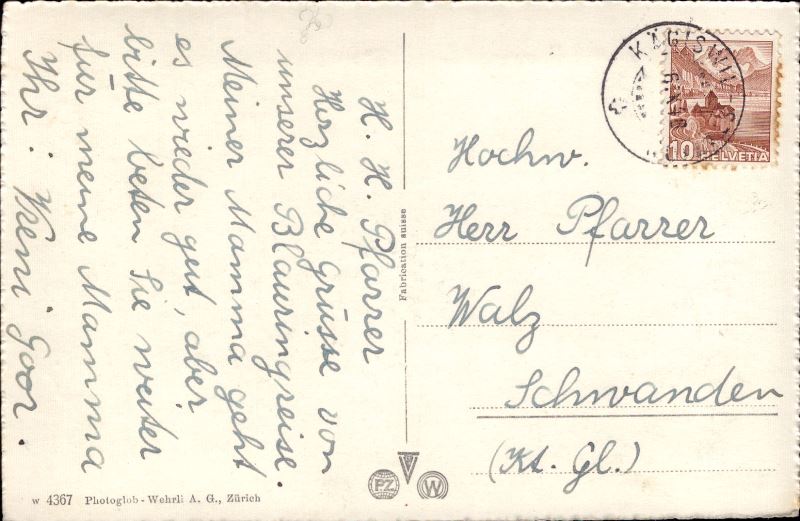 H. H. Pfarrer
Herzliche Grüsse von
unserer Blauringreise.
Meiner Mamma geht
es wieder gut, aber
bitte beten Sie weiter
für meine Mamma
Ihr: Vreni Goor.
Fabrication suisse
KAGISWIL
10 HELVETIA
Hochw.
Herr Pfarrer
Walz
Schwanden
(Kt. Gl.)
P.Z. W
W 4367 Photoglob-Wehrli A. G., Zürich